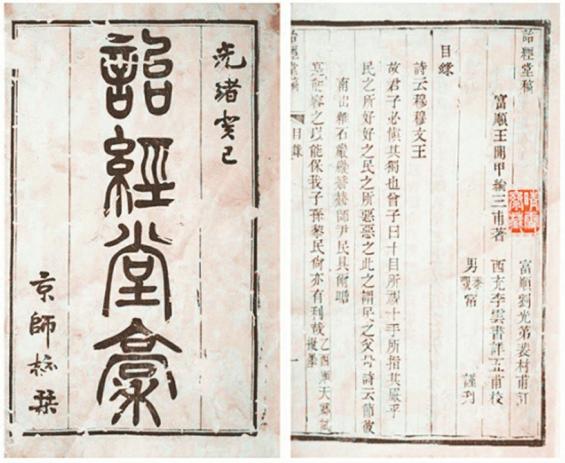 光緒癸巳
詒經堂稾
京師 栞
詒經堂稿
富順王開甲綸三甫著
富順劉光第裴村甫訂
西充李雲書評五甫校
男 常 謹刊
目錄
詩云穆穆文王
故君子必慎其獨也曾子曰十目所視十手所指其嚴乎
民之所好好之民之所惡惡之此之謂民之父母詩云節彼
南山維石巖巖赫赫師尹民具爾瞻
寔能容之以能保我子孫黎民尚亦有利哉 乙酉順天
詒經堂稿 目錄 一